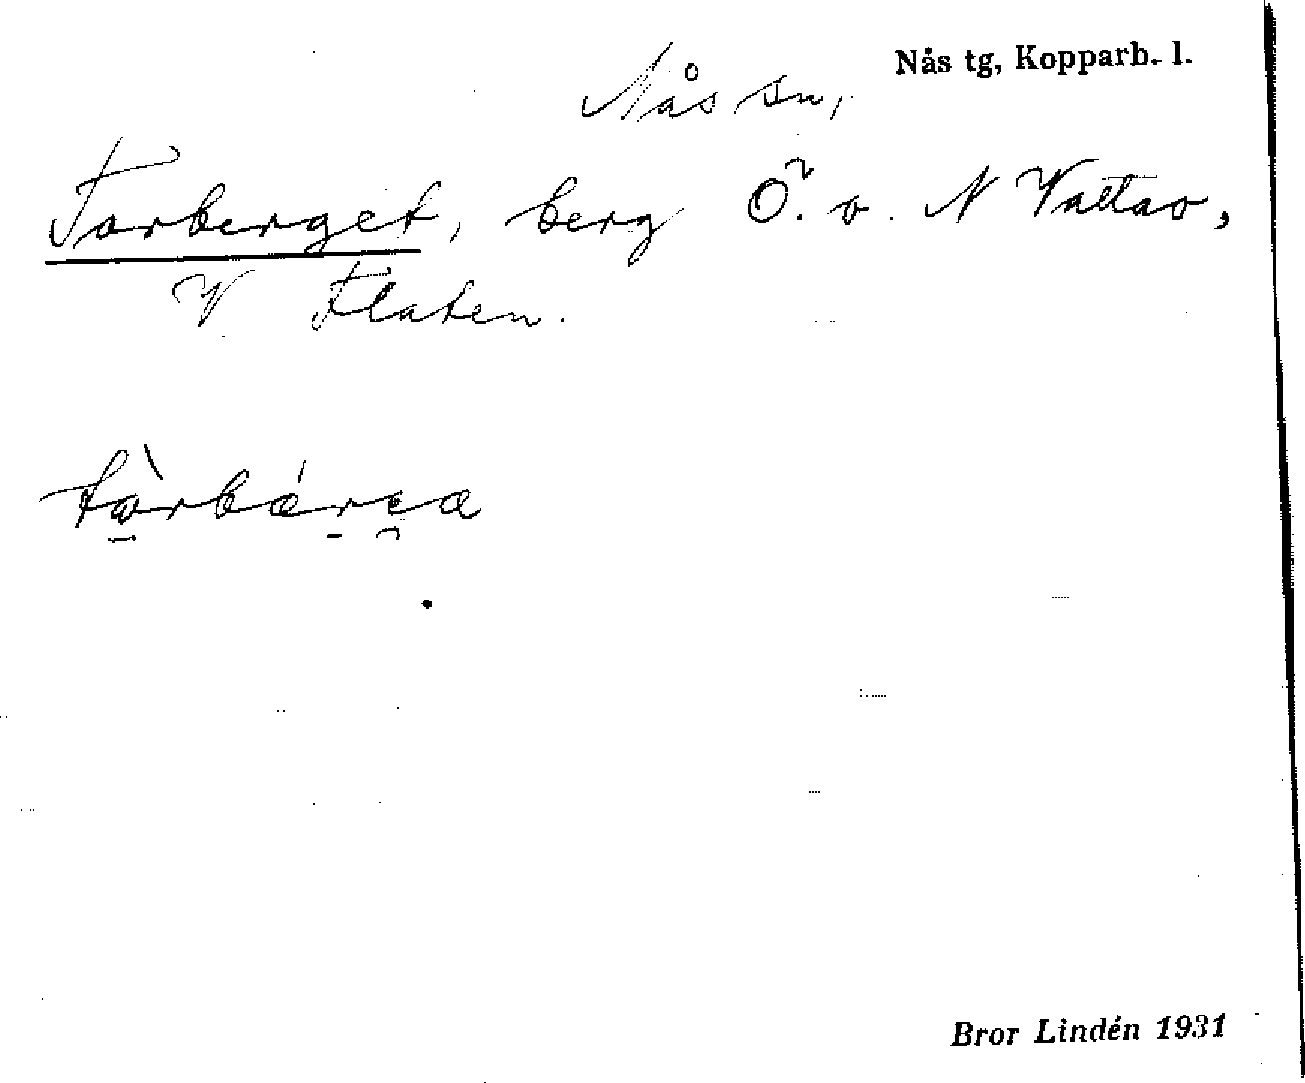 Nås tg, Kopparb. l.
Nås sn,
Torberget, berg Ö. v. N Valtao,
V Flaten.
tòrbǽrea
Bror Lindén 1931